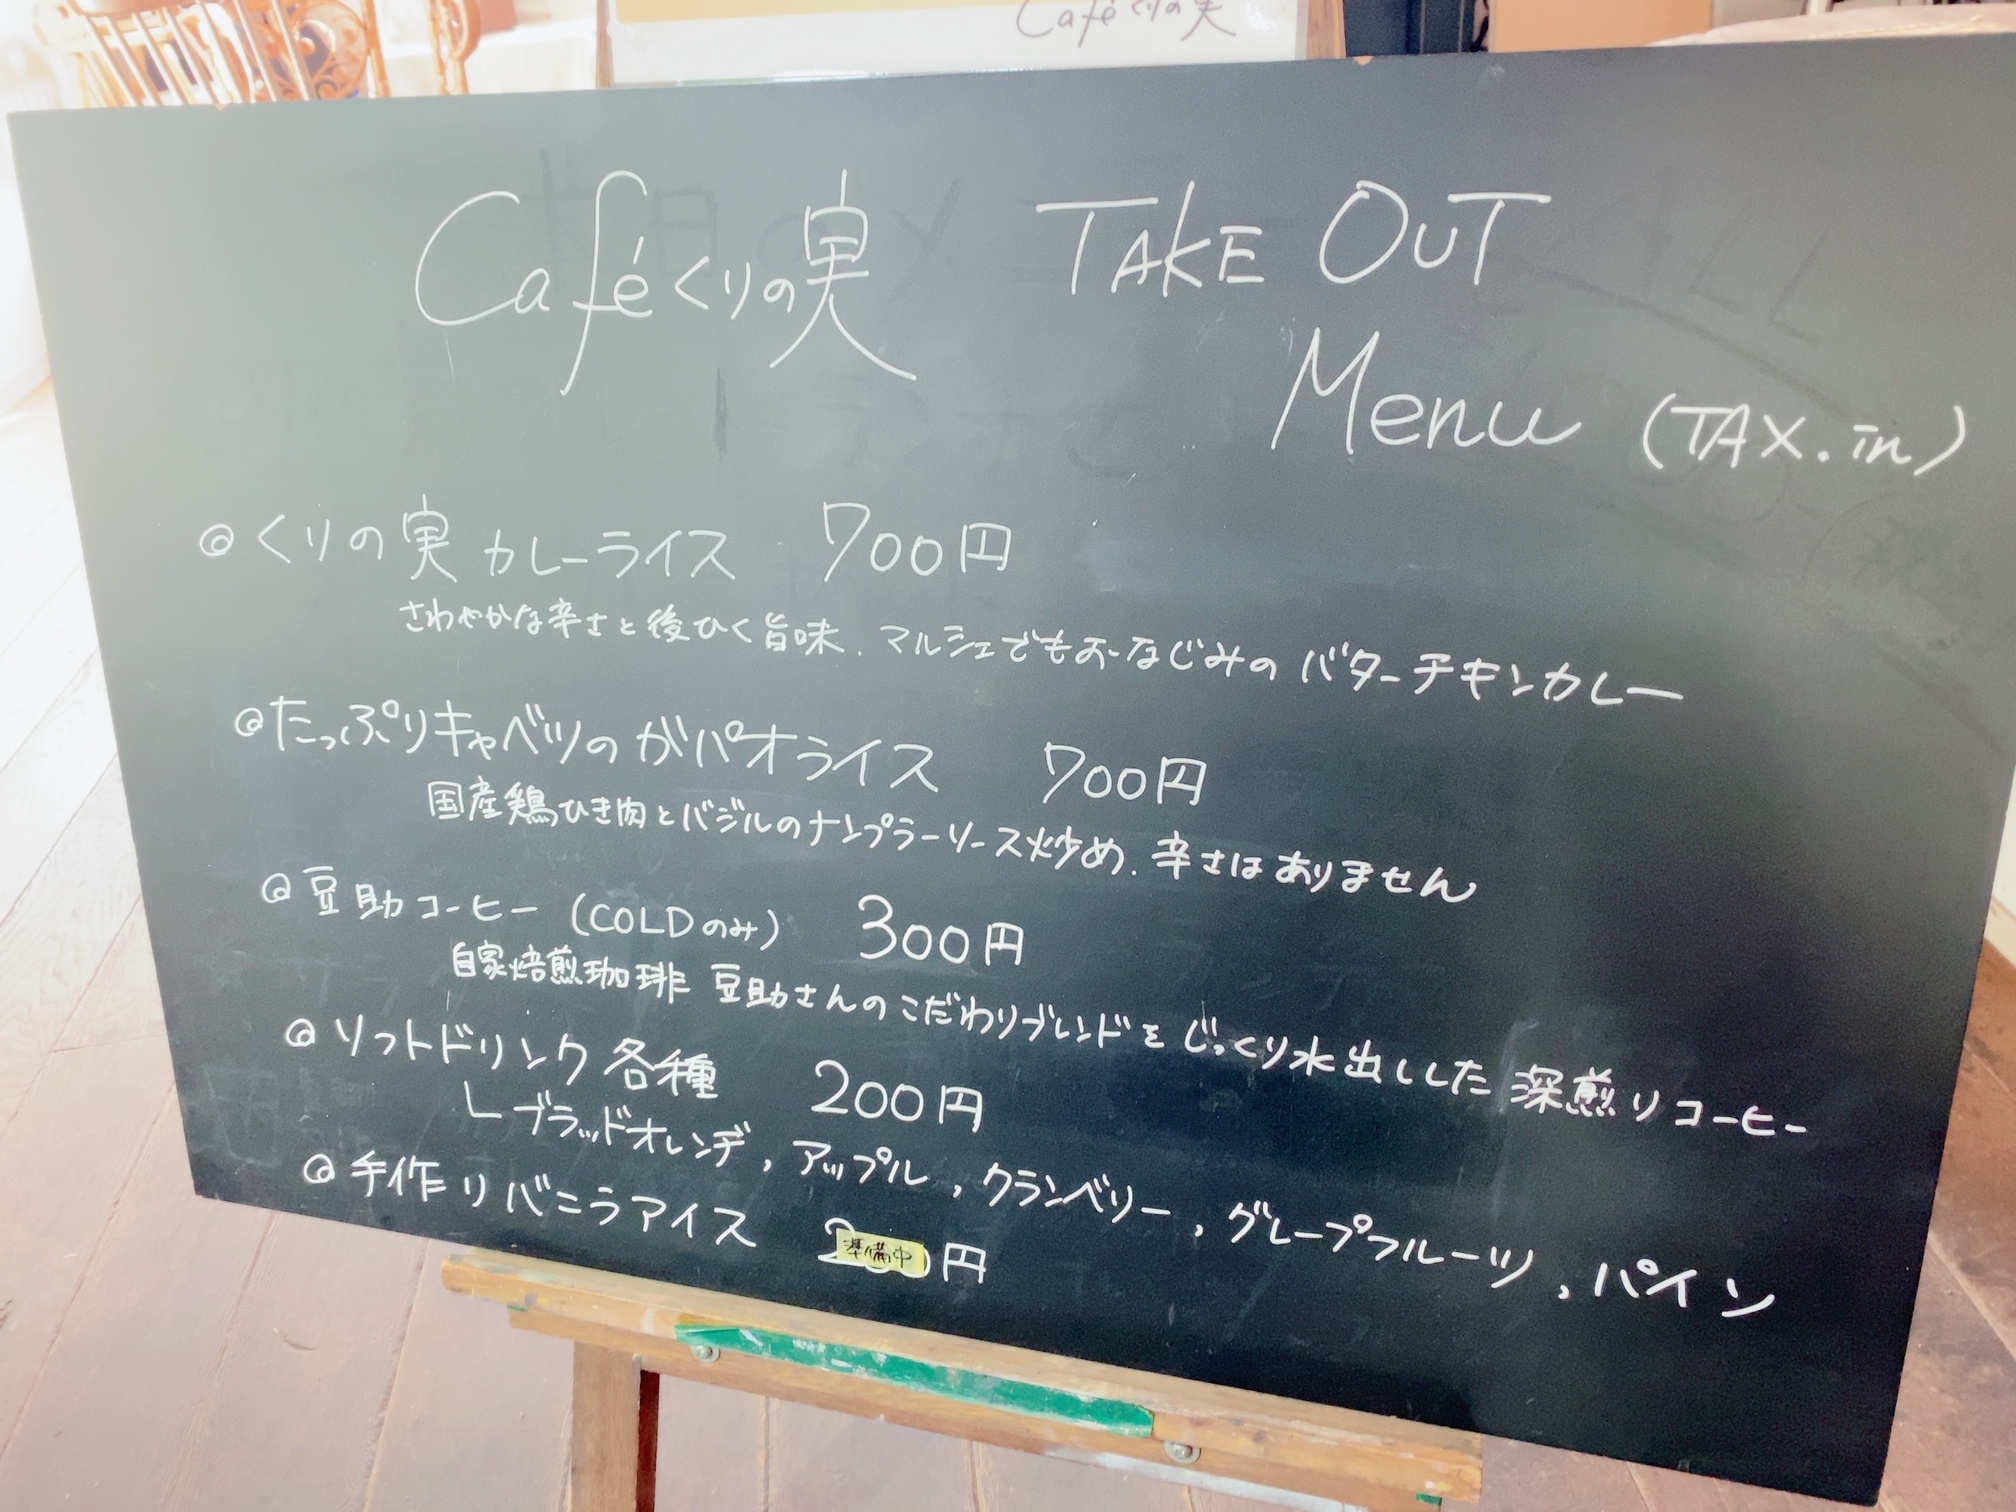 Café くりの実
Café くりの実 TAKE OUT
Menu (TAX.in)
◎くりの実カレーライス 700円
さわやかな辛さと後ひく旨味. マルシェでもおなじみのバターチキンカレー
◎たっぷりキャベツのガパオライス 700円
国産鶏ひき肉とバジルのナンプラーソース炒め. 辛さはありません
◎豆助コーヒー (COLDのみ) 300円
自家焙煎珈琲 豆助さんのこだわりブレンドをじっくり水出しした深煎りコーヒー
◎ソフトドリンク各種 200円
└ブラッドオレンヂ, アップル, クランベリー, グレープフルーツ, パイン
◎手作りバニラアイス 準備中 円